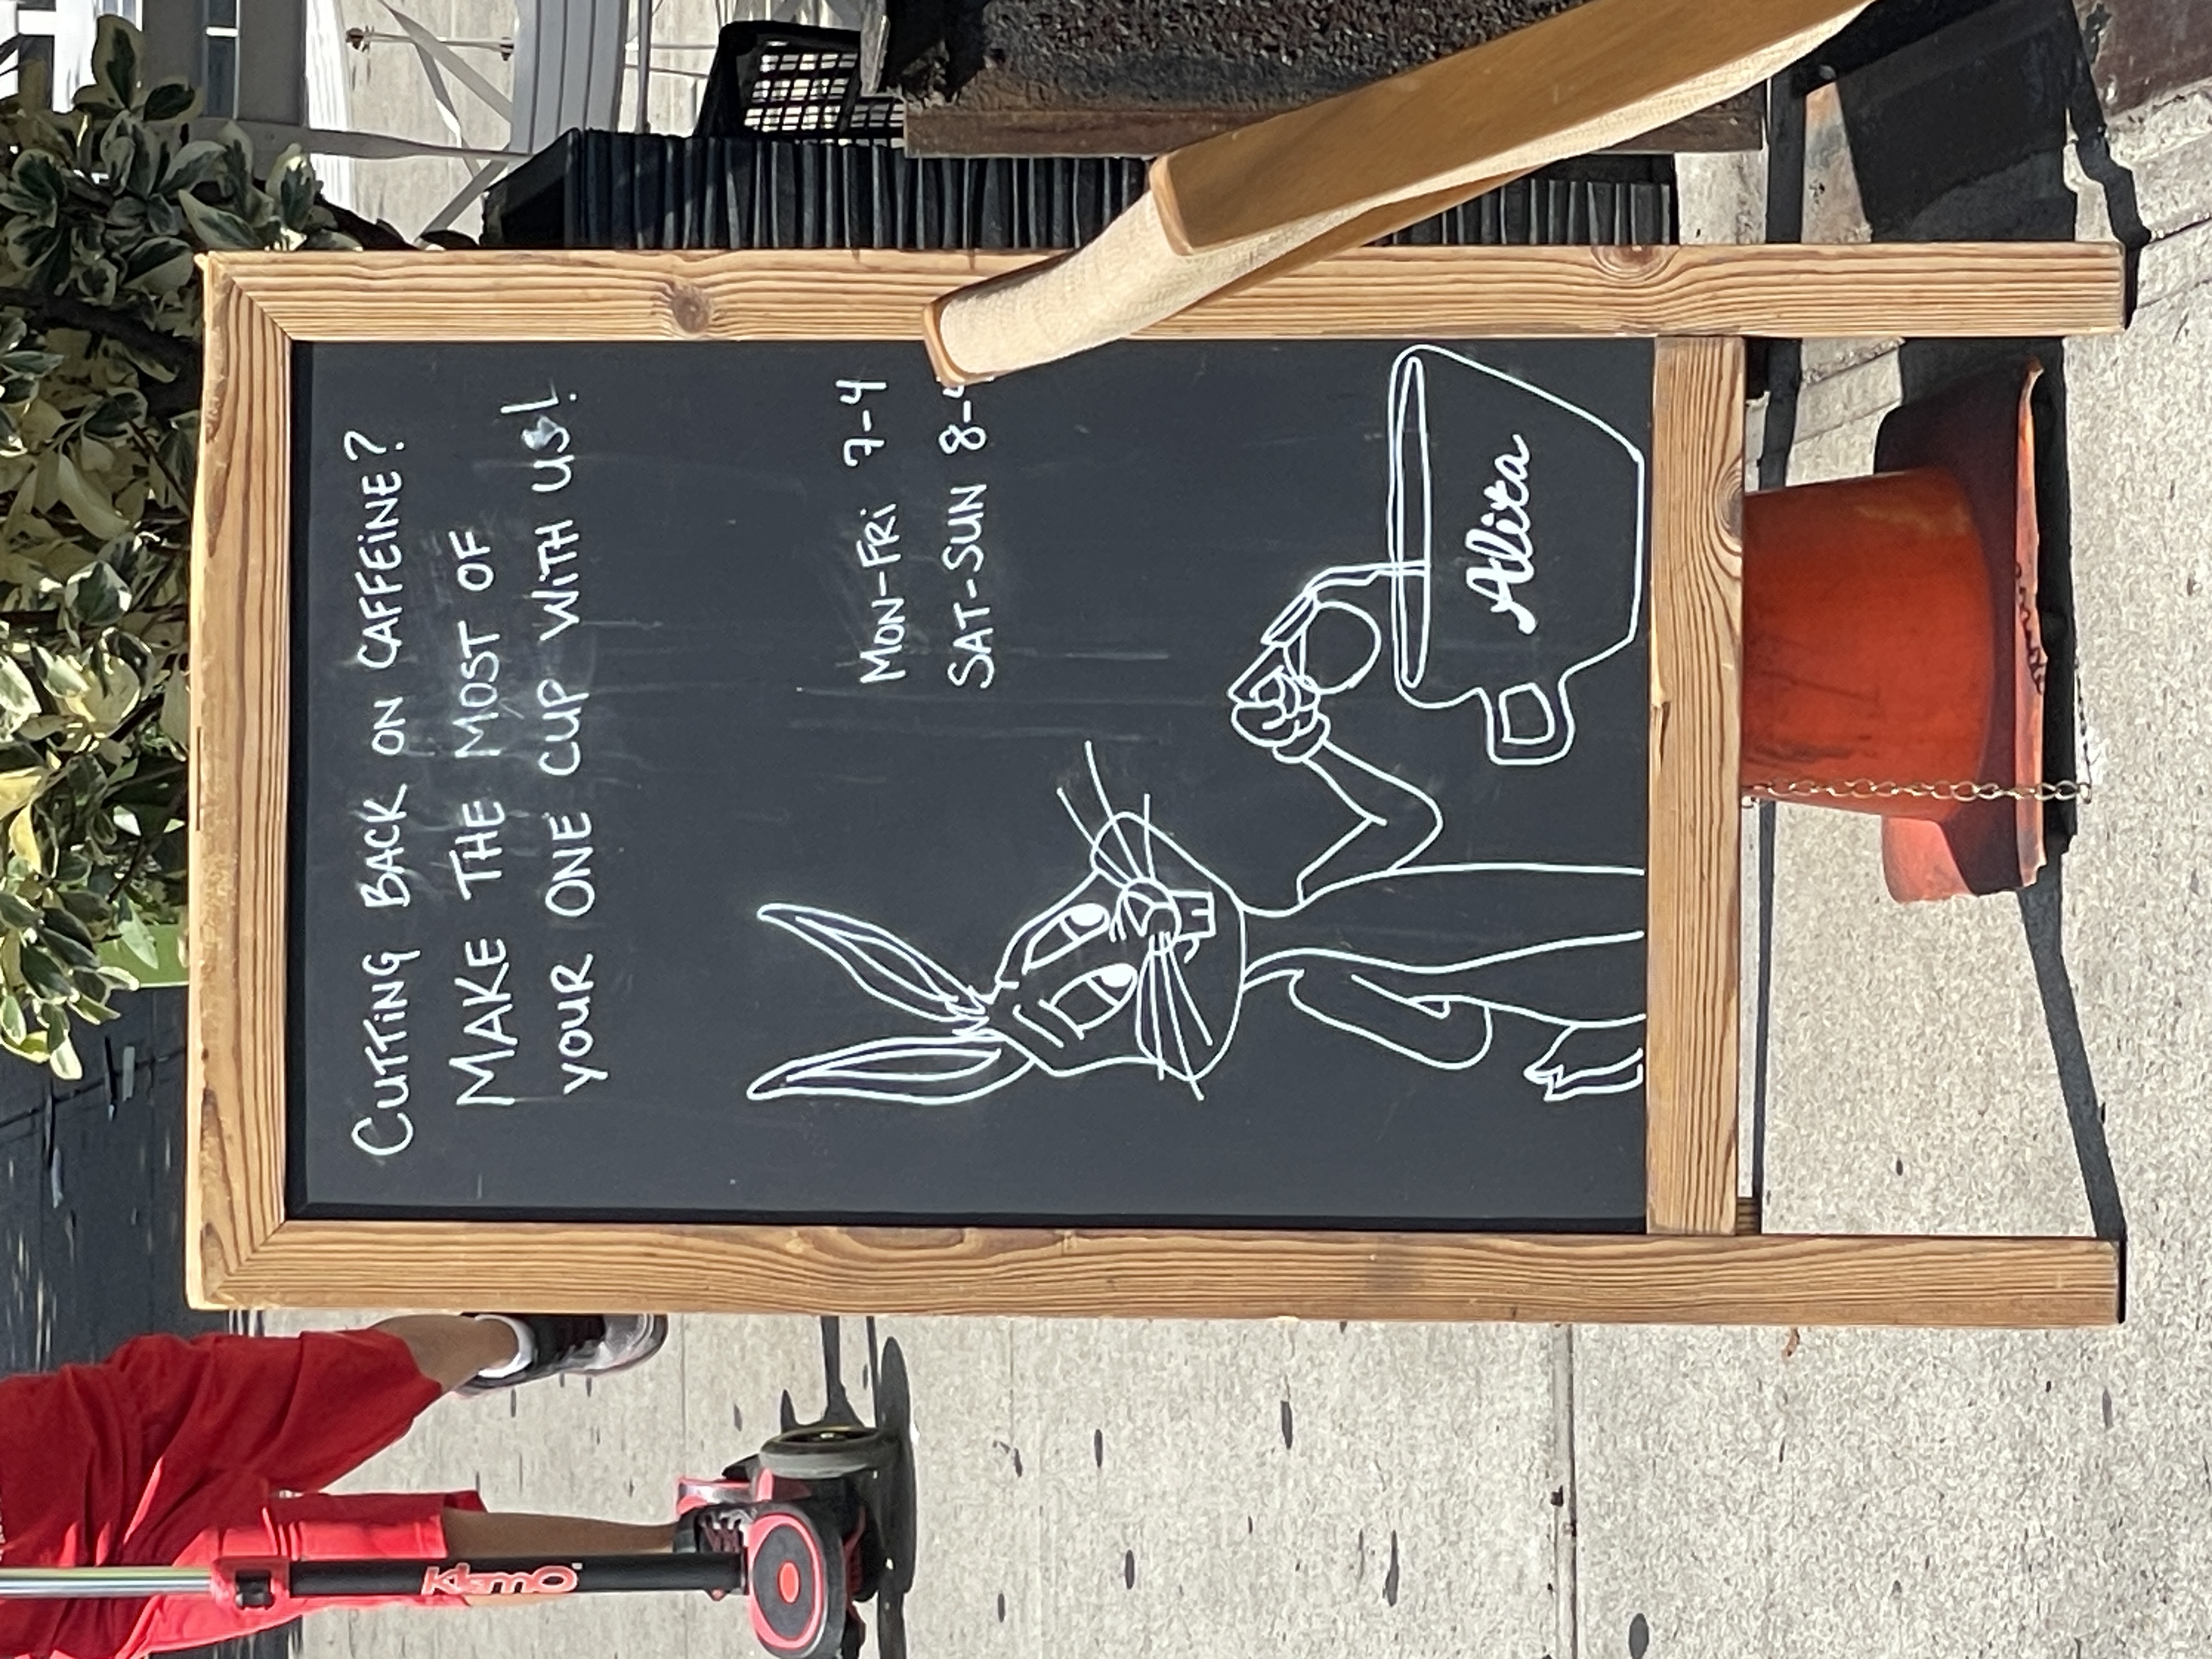 CUTTING BACK ON CAFFEINE?
MAKE THE MOST OF
YOUR ONE CUP WITH US!
MON-FRI 7-4
SAT-SUN 8-
Alita
Kimmo